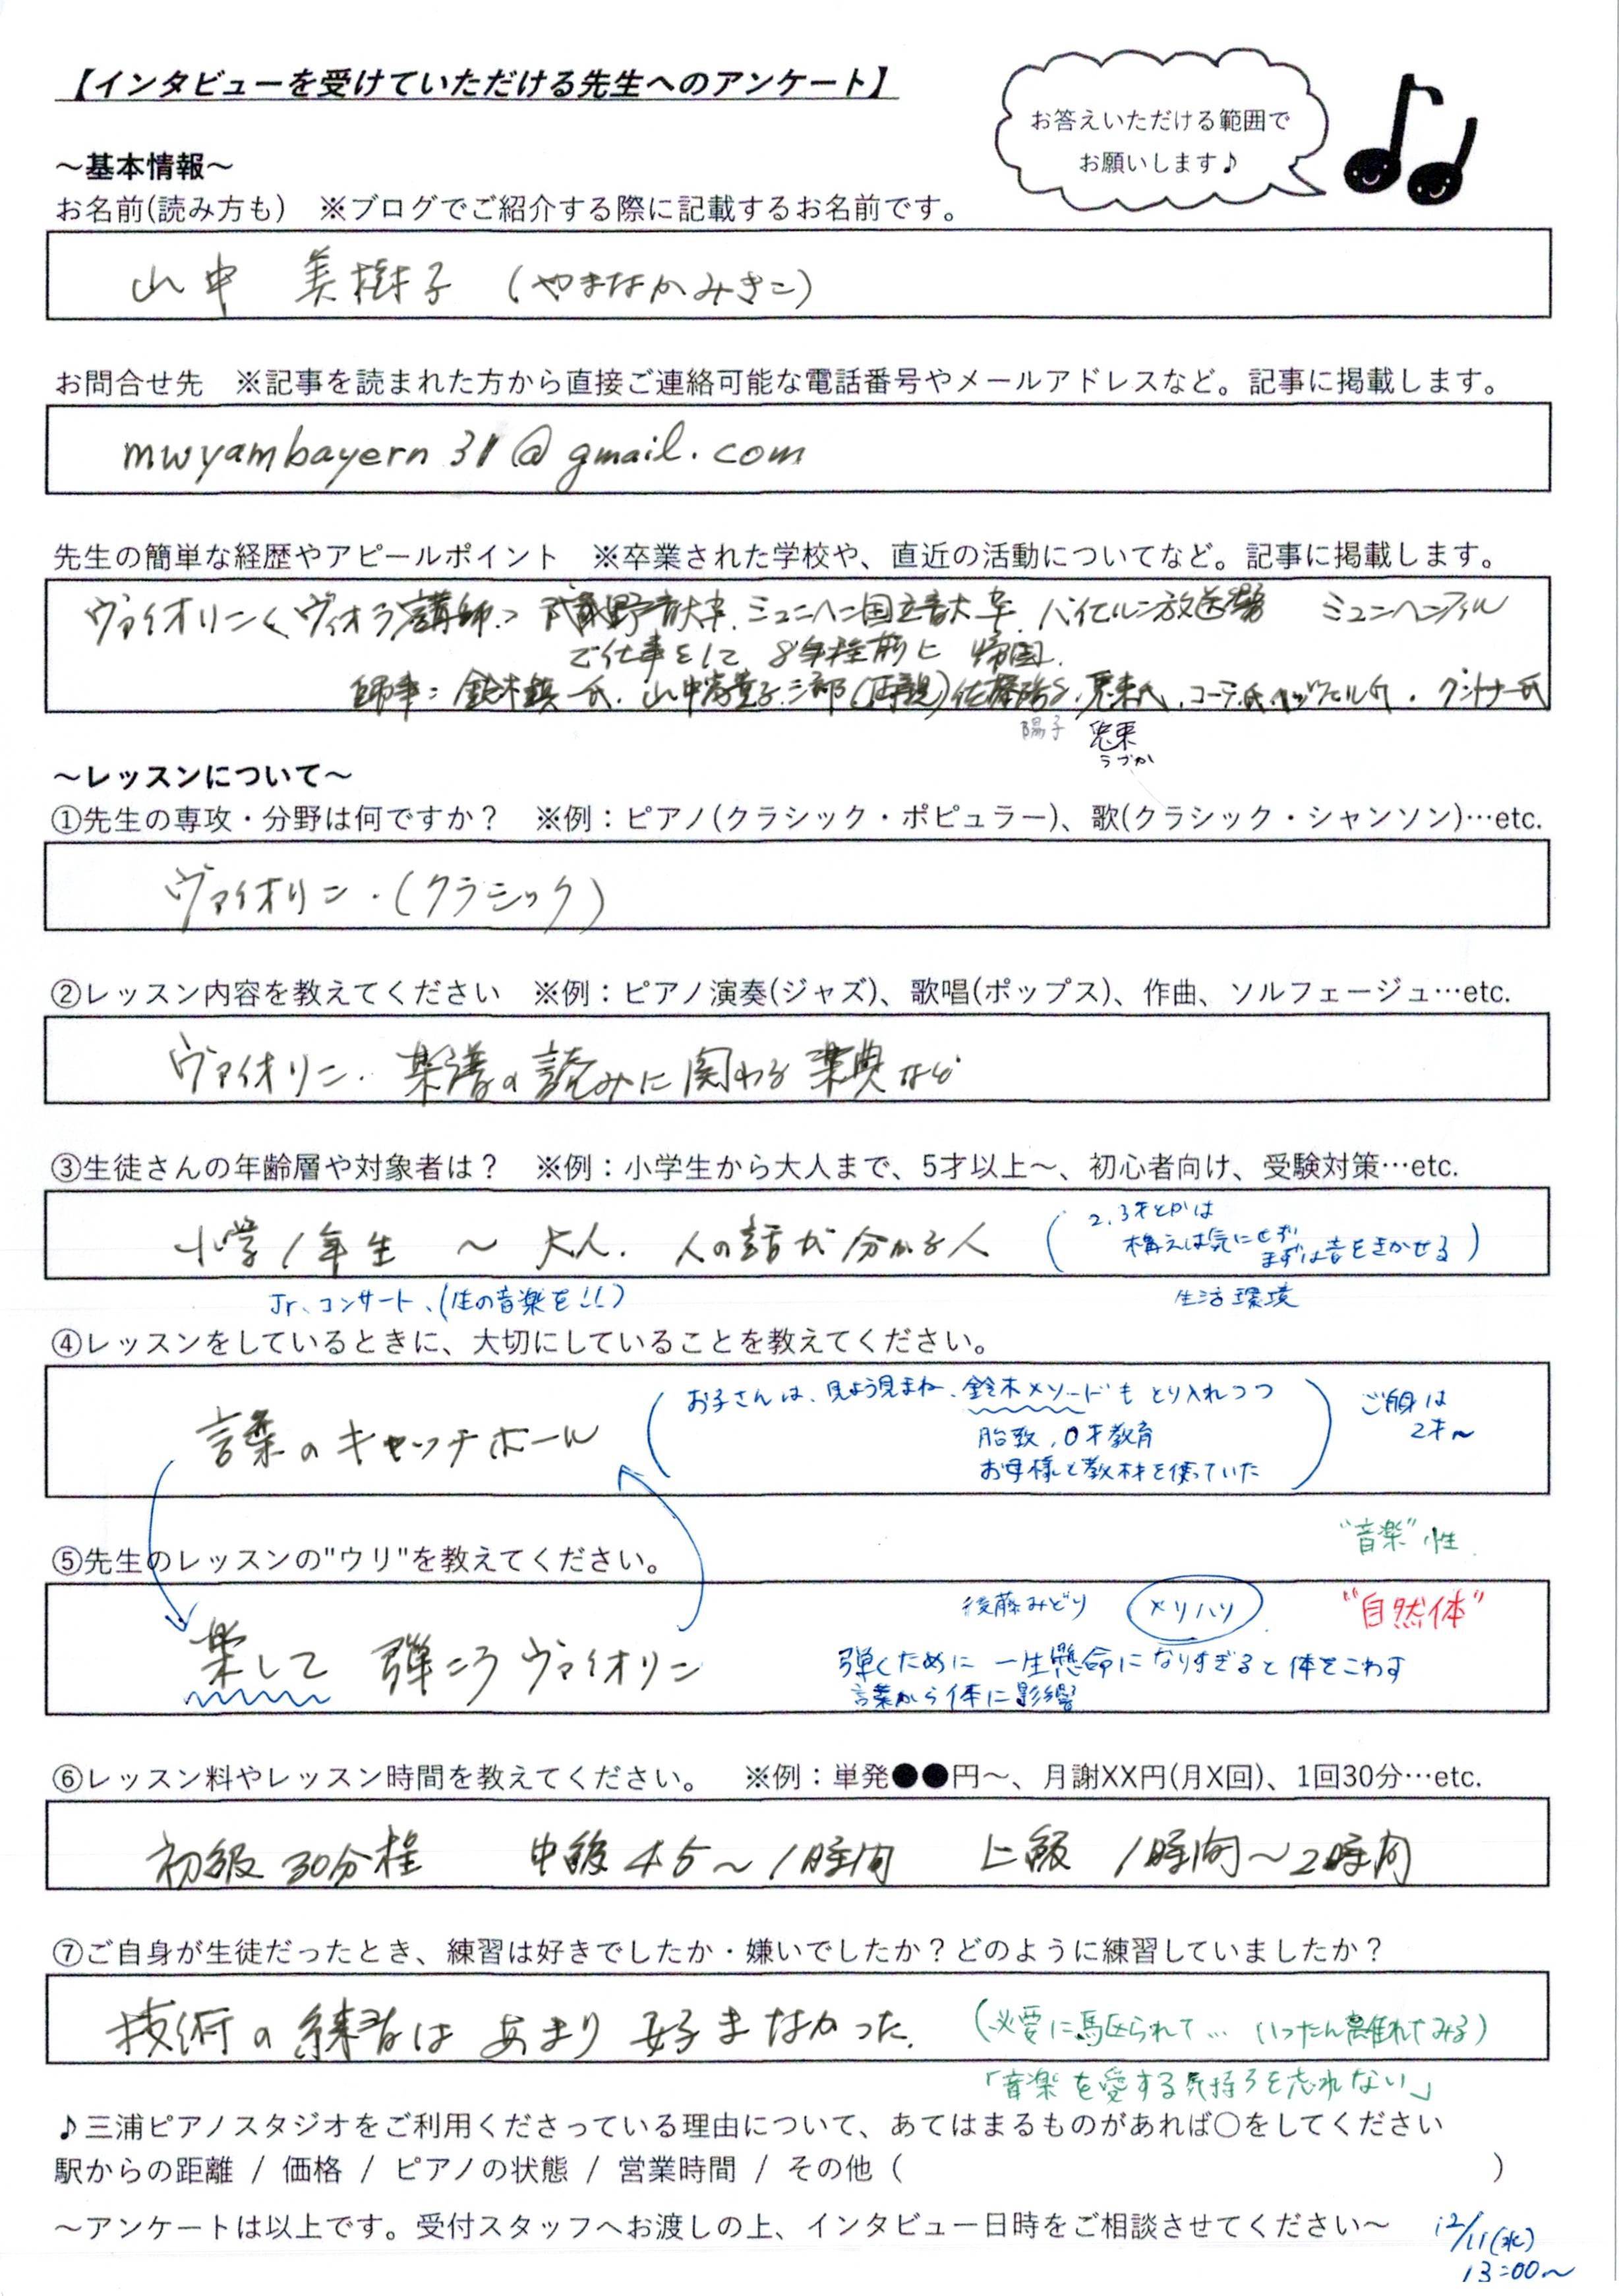 【インタビューを受けていただける先生へのアンケート】
お答えいただける範囲で
お願いします♪
～基本情報～
お名前(読み方も)　※ブログでご紹介する際に記載するお名前です。
山中　美樹子（やまなかみきこ）
お問合せ先　※記事を読まれた方から直接ご連絡可能な電話番号やメールアドレスなど。記事に掲載します。
mwyambayern31@gmail.com
先生の簡単な経歴やアピールポイント　※卒業された学校や、直近の活動についてなど。記事に掲載します。
ヴァイオリン ヴィオラ講師 武蔵野音大卒. ミュンヘン国立音大卒. バイエルン放送 ミュンヘンフィル
で仕事をして 8年程前に 帰国.
師事：鈴木鎮一氏. 山中 (両親) 佐藤 . コーテ氏 . グントナー氏
陽子
～レッスンについて～
①先生の専攻・分野は何ですか？　※例：ピアノ(クラシック・ポピュラー)、歌(クラシック・シャンソン)…etc.
ヴァイオリン・(クラシック)
②レッスン内容を教えてください　※例：ピアノ演奏(ジャズ)、歌唱(ポップス)、作曲、ソルフェージュ…etc.
ヴァイオリン. 楽譜の読みに関わる楽典など
③生徒さんの年齢層や対象者は？　※例：小学生から大人まで、5才以上～、初心者向け、受験対策…etc.
小学1年生 ～ 大人. 人の話が分かる人
(2、3才とかは
構えは気にせず
まずは音をきかせる)
Jr.コンサート、(生の音楽を!!)
生活環境
④レッスンをしているときに、大切にしていることを教えてください。
言葉のキャッチボール
(お子さんは、見よう見まね、鈴木メソードもとり入れつつ
胎教、0才教育
お母様と教材を使っていた)
ご自身は
2才～
"音楽"性
⑤先生のレッスンの"ウリ"を教えてください。
楽して 弾こう ヴァイオリン
後藤みどり
メリハリ
"自然体"
弾くために 一生懸命になりすぎると体をこわす
言葉から体に影響
⑥レッスン料やレッスン時間を教えてください。　※例：単発●●円～、月謝XX円(月X回)、1回30分…etc.
初級 30分程　中級 45～1時間　上級 1時間～2時間
⑦ご自身が生徒だったとき、練習は好きでしたか・嫌いでしたか？どのように練習していましたか？
技術の練習は あまり 好まなかった.
(必要に駆られて… いったん離れてみる)
「音楽を愛する気持ちを忘れない」
♪三浦ピアノスタジオをご利用くださっている理由について、あてはまるものがあれば○をしてください
駅からの距離 / 価格 / ピアノの状態 / 営業時間 / その他 (　　　)
～アンケートは以上です。受付スタッフへお渡しの上、インタビュー日時をご相談させてください～
12/11(水)
13:00～